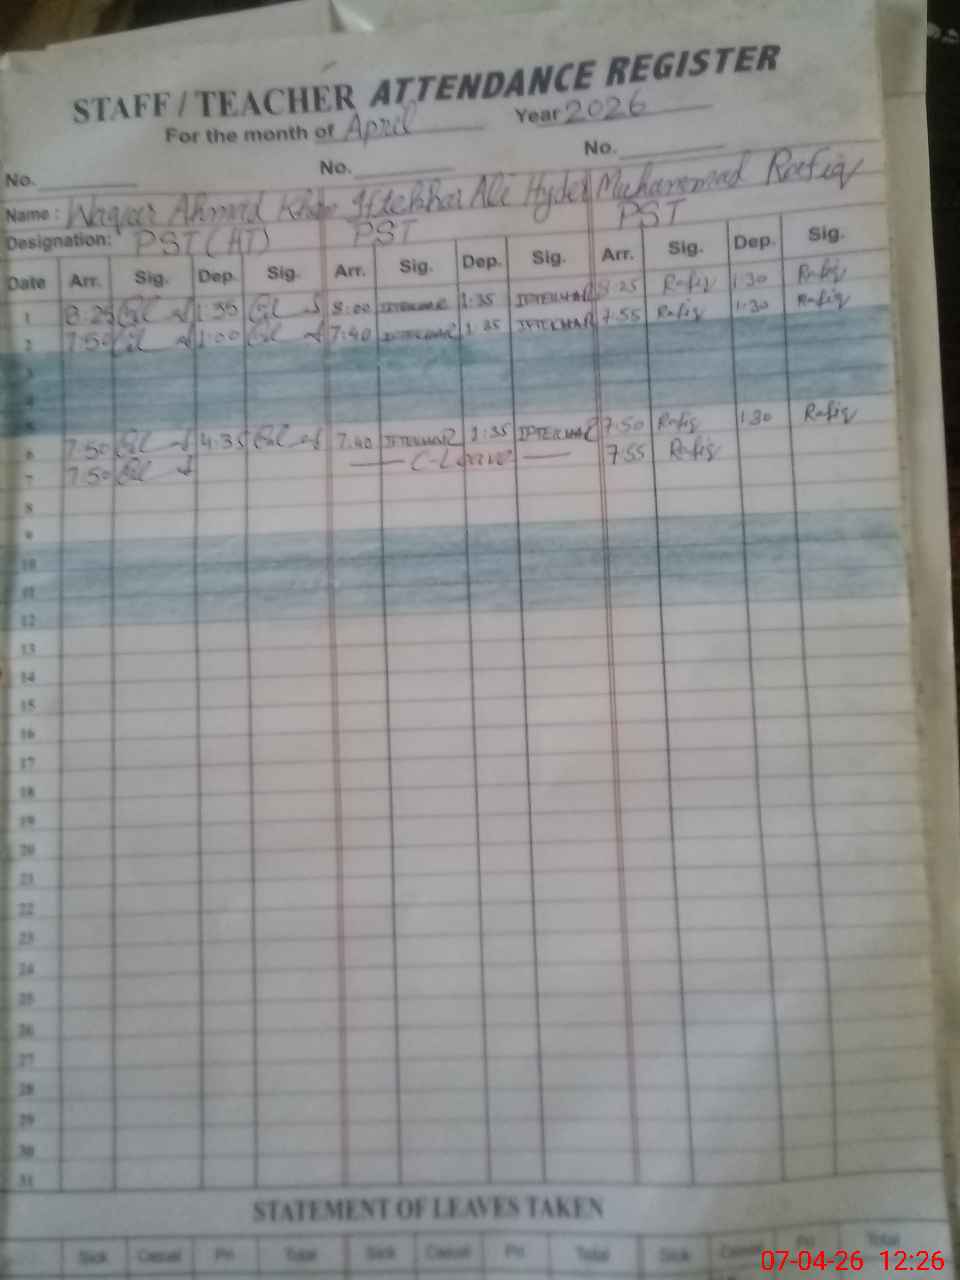 STAFF / TEACHER ATTENDANCE REGISTER
For the month of April Year 2026
No. No. No.
Name : Waqar Ahmad Khan Iftekhar Ali Hyder Muhammad Rafiq
Designation: PST (HT) PST PST
Date Arr. Sig. Dep. Sig. Arr. Sig. Dep. Sig. Arr. Sig. Dep. Sig.
1 8:25 1:35 8:00 IFTEKHAR 1:35 IFTEKHAR 8:25 Rafiq 1:30 Rafiq
2 7:50 1:00 7:40 IFTEKHAR 1:35 IFTEKHAR 7:55 Rafiq 1:30 Rafiq
3
4
5
6 7:50 4:35 7:40 IFTEKHAR 1:35 IFTEKHAR 7:50 Rafiq 1:30 Rafiq
7 7:50 C-Leave 7:55 Rafiq
8
9
10
11
12
13
14
15
16
17
18
19
20
21
22
23
24
25
26
27
28
29
30
31
STATEMENT OF LEAVES TAKEN
Sick Casual Pri Total Sick Casual Pri Total Sick Casual Pri Total
07-04-26 12:26